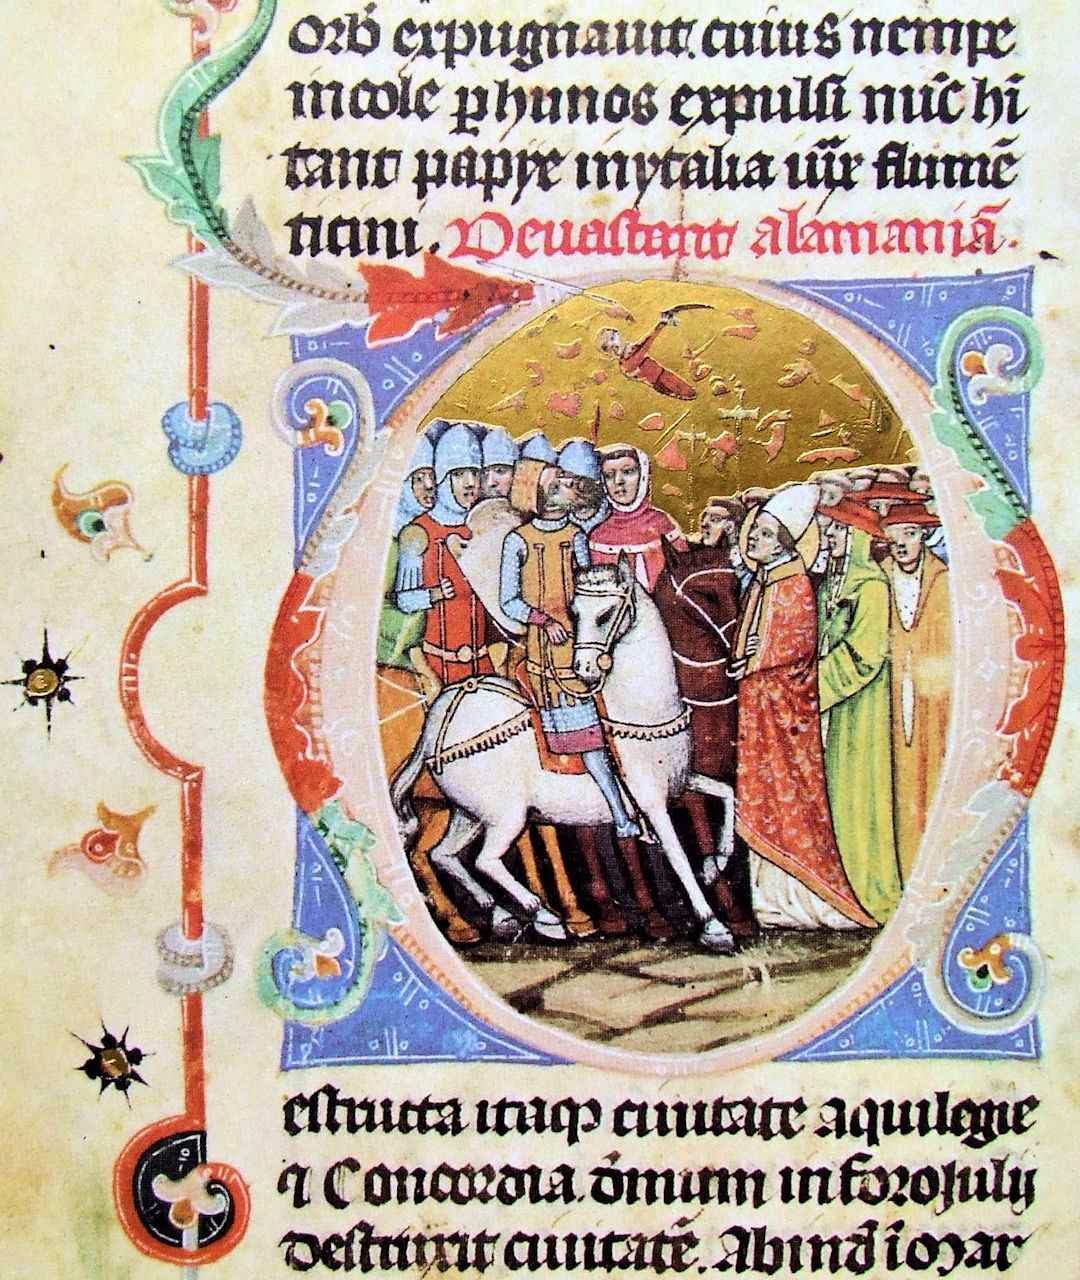 orb̄ expugnauit. cuius nempe
incole ꝑ hunos expulsi nūc hī
tant papye in ytalia iux̄ flumē
ticini. Deuastant alamaniā.
estructa itaqꝫ ciuitate aquilegie
⁊ Concordia. ōmium in foro Julij
destruxit ciuitatē. Abind̄ ī Mar